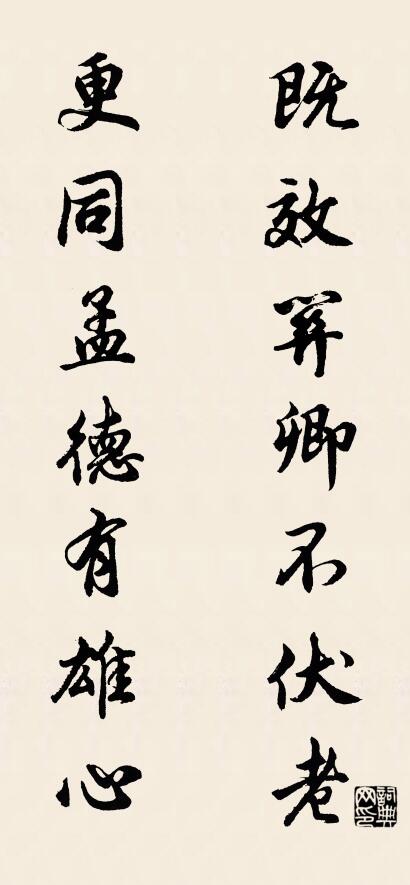 既效關卿不伏老
更同孟德有雄心
詞典网印